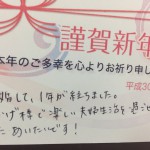 謹賀新年
本年のご多幸を心よりお祈り申し
平成30
して、1年が経ちました。
げ様で楽しい夫婦生活を過ご
めいたいです!